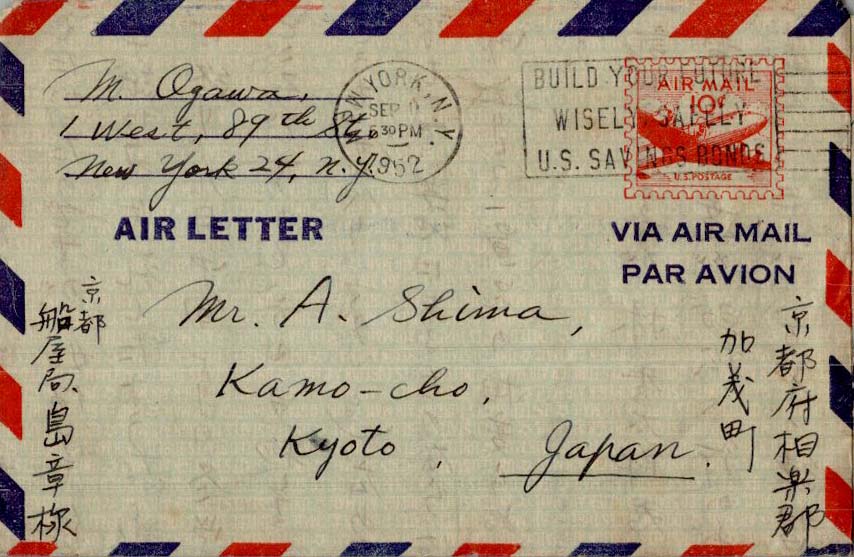 M. Ogawa,
1 West, 89th St.
New York 24, N.Y.
W YORK, N.Y.
SEP
6 30 PM
1952
BUILD YOUR FUTURE
WISELY SAFELY
U.S. SAVINGS BONDS
AIR MAIL
10¢
U.S. POSTAGE
AIR LETTER
VIA AIR MAIL
PAR AVION
Mr. A. Shima,
Kamo-cho,
Kyoto, Japan.
京都府相楽郡
加茂町
京都
船屋局、島章様